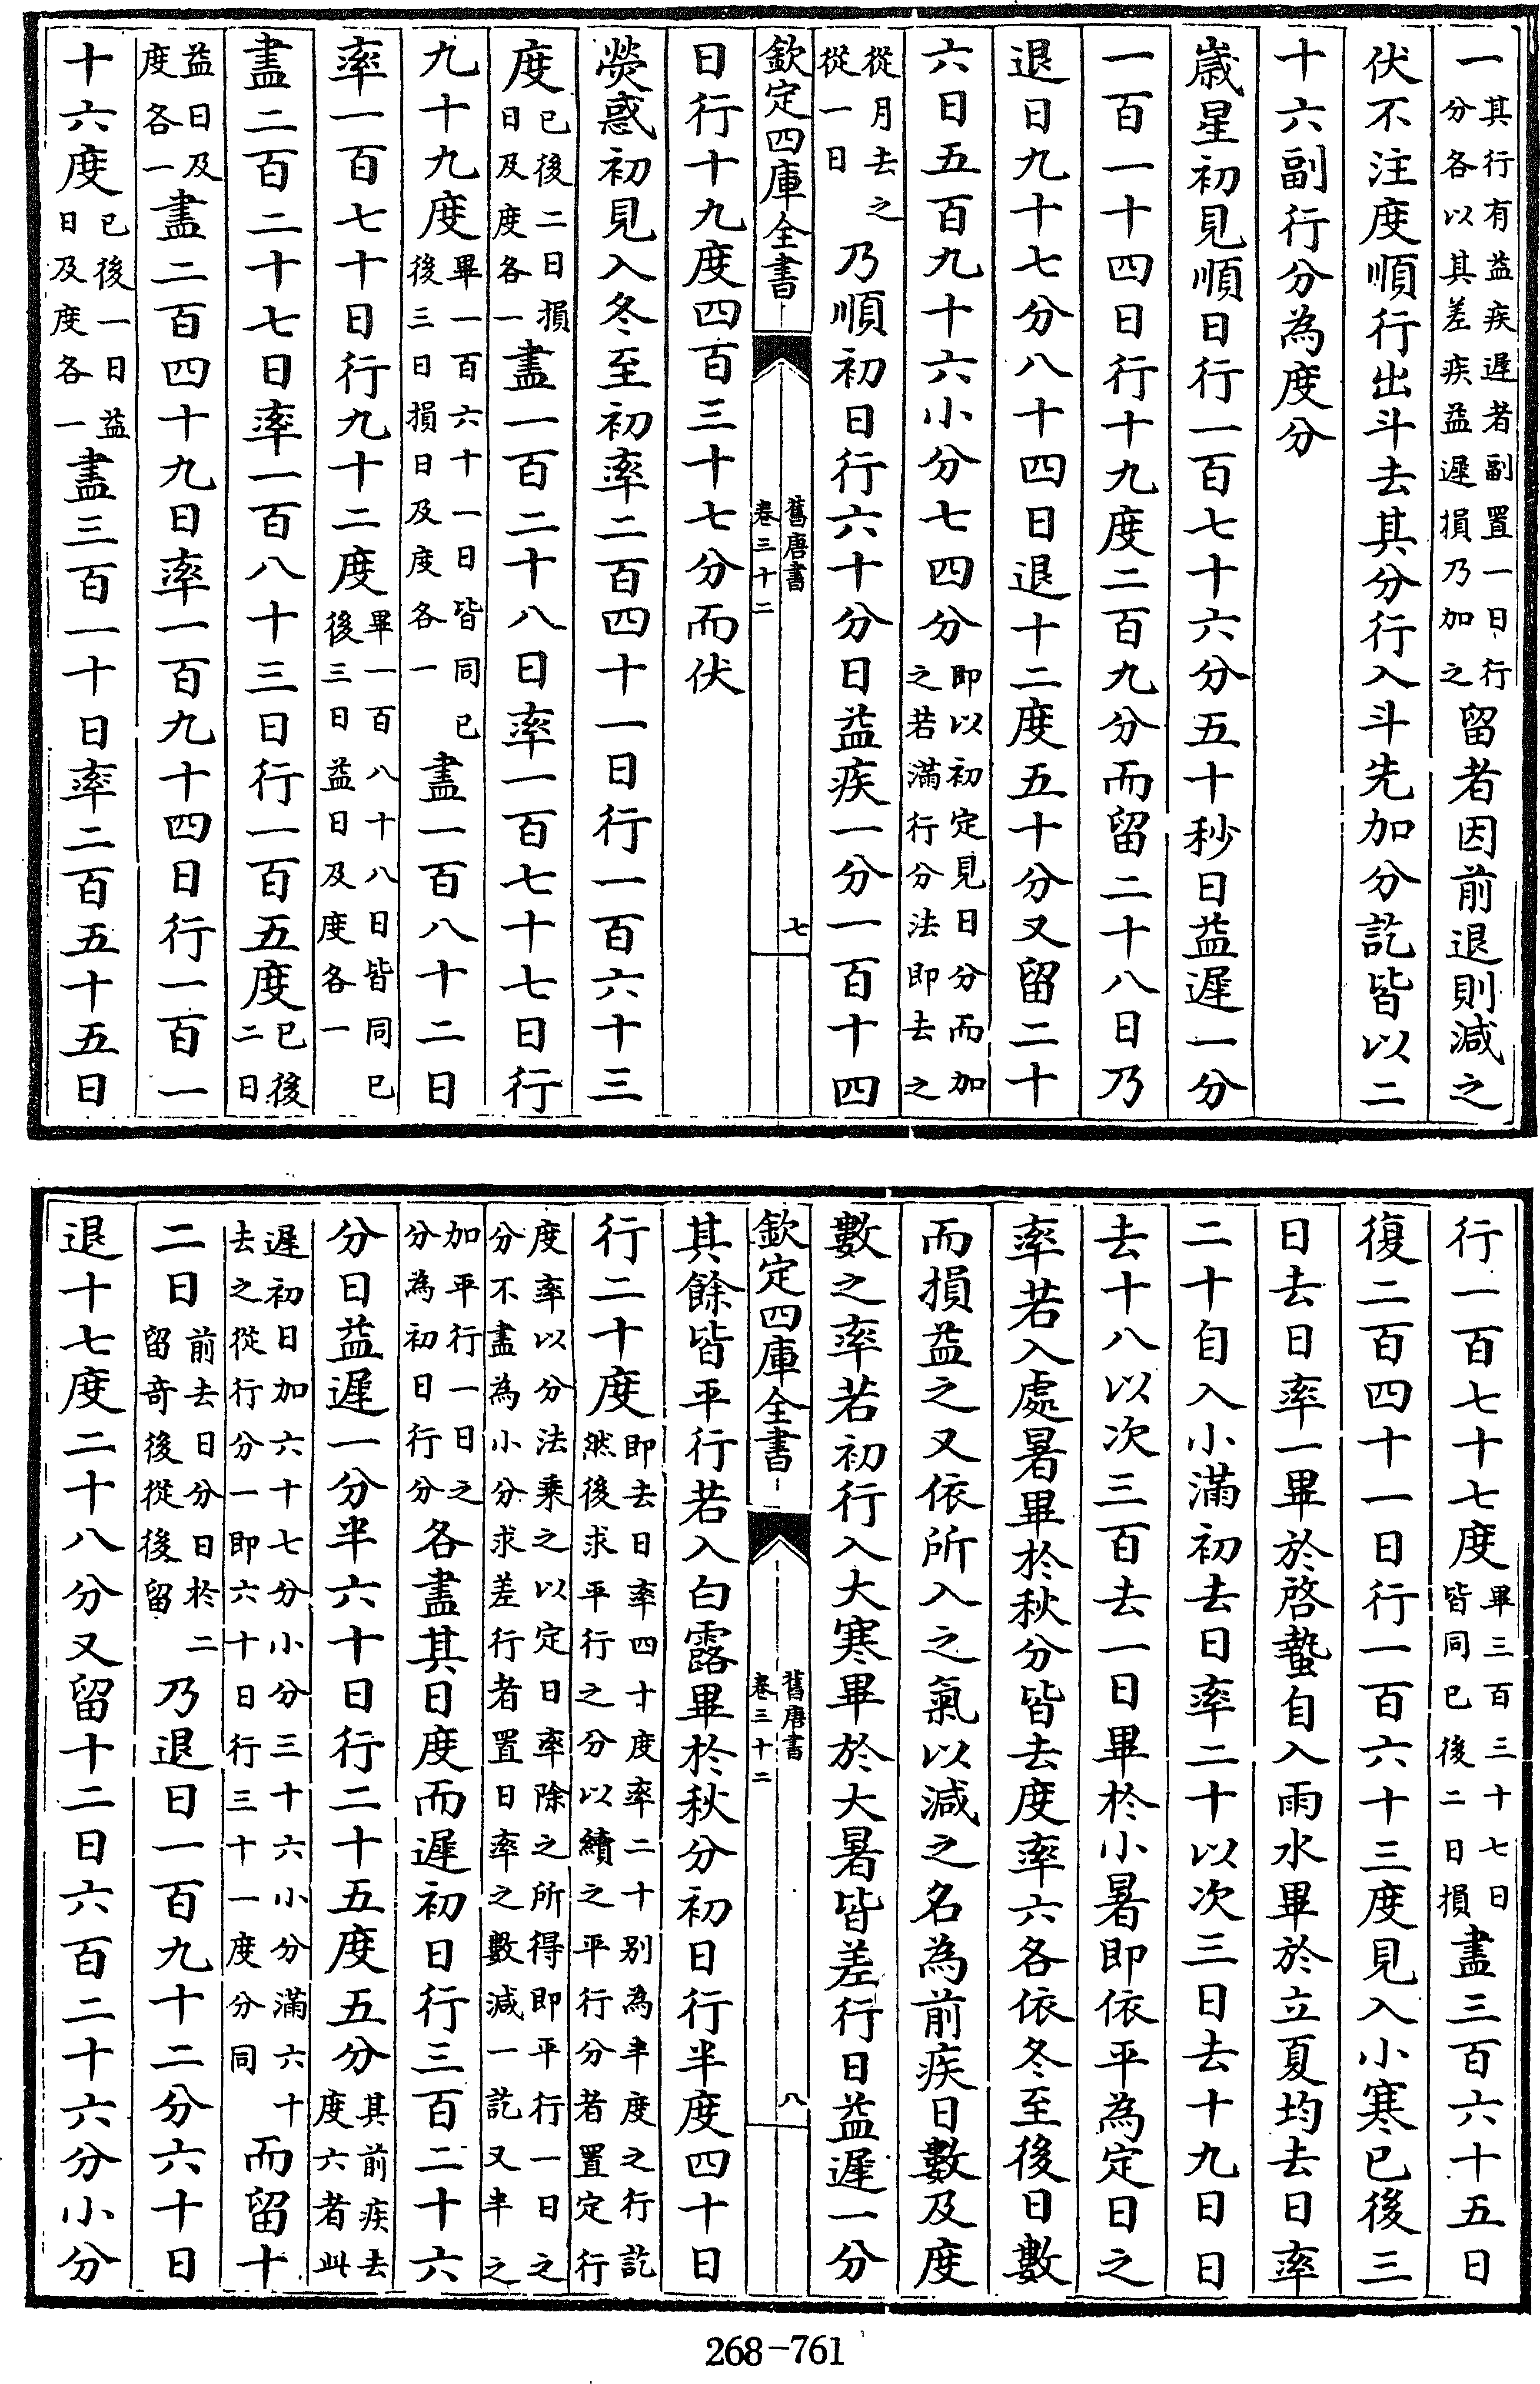 一其行有益疾遲者副置一日行分各以其差疾益遲損乃加之留者因前退則減之
伏不注度順行出斗去其分行入斗先加分訖皆以二
十六副行分為度分
歳星初見順日行一百七十六分五十秒日益遲一分
一百一十四日行十九度二百九分而留二十八日乃
退日九十七分八十四日退十二度五十分又留二十
六日五百九十六小分七四分即以初定見日分而加之若滿行分法即去之
從月去之從一日乃順初日行六十分日益疾一分一百十四
欽定四庫全書
舊唐書
卷三十二
七
日行十九度四百三十七分而伏
熒惑初見入冬至初率二百四十一日行一百六十三
度已後二日損日及度各一盡一百二十八日率一百七十七日行
九十九度畢一百六十一日皆同已後三日損日及度各一盡一百八十二日
率一百七十日行九十二度畢一百八十八日皆同已後三日益日及度各一
盡二百二十七日率一百八十三日行一百五度已後二日
益日及度各一盡二百四十九日率一百九十四日行一百一
十六度已後一日益日及度各一盡三百一十日率二百五十五日
行一百七十七度畢三百三十七日皆同已後二日損盡三百六十五日
復二百四十一日行一百六十三度見入小寒已後三
日去日率一畢於啓蟄自入雨水畢於立夏均去日率
二十自入小滿初去日率二十以次三日去十九日日
去十八以次三百去一日畢於小暑即依平為定日之
率若入處暑畢於秋分皆去度率六各依冬至後日數
而損益之又依所入之氣以減之名為前疾日數及度
數之率若初行入大寒畢於大暑皆差行日益遲一分
欽定四庫全書
舊唐書
卷三十二
八
其餘皆平行若入白露畢於秋分初日行半度四十日
行二十度即去日率四十度率二十别為半度之行訖然後求平行之分以續之平行分者置定行
度率以分法乘之以定日率除之所得即平行一日之分不盡為小分求差行者置日率之數減一訖又半之
加平行一日之分為初日行分各盡其日度而遲初日行三百二十六
分日益遲一分半六十日行二十五度五分其前疾去度六者此
遲初日加六十七分小分三十六小分滿六十去之從行分一即六十日行三十一度分同而留十
二日前去日分日於二留奇後從後留乃退日一百九十二分六十日
退十七度二十八分又留十二日六百二十六分小分
268-761